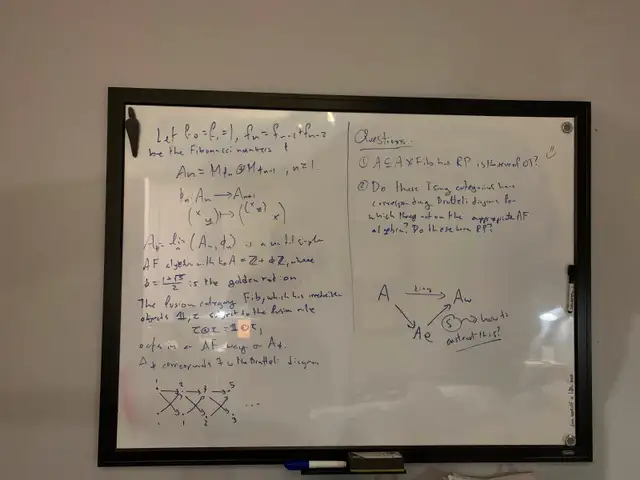 Let f₀=f₁=1, fn=fn-1+fn-2
be the Fibonacci numbers &
An = Mfn ⊕ Mfn+1, n≥1
φn: An → An+1
(x y) ↦ ((x y) x)
Aφ=lim (An, φn) is a unital simple
AF algebra with K₀A = Z+φZ, where
φ=1+√5/2 is the golden ration
The fusion category Fib, which has irreducible
objects 1, τ subject to the fusion rule
τ⊗τ=1⊕τ,
acts in an AF way on Aφ.
Aφ corresponds to the Bratteli diagram
1 2 3 5
1 1 2 3 ...
Questions:
① A⊆A⋊Fib has RP is the use of OT?
② Do these Ising categories have
corresponding Bratteli diagrams for
which they act on the appropriate AF
algebra? Do these have RP?
A → Aω
Ae
S → how to
construct this?